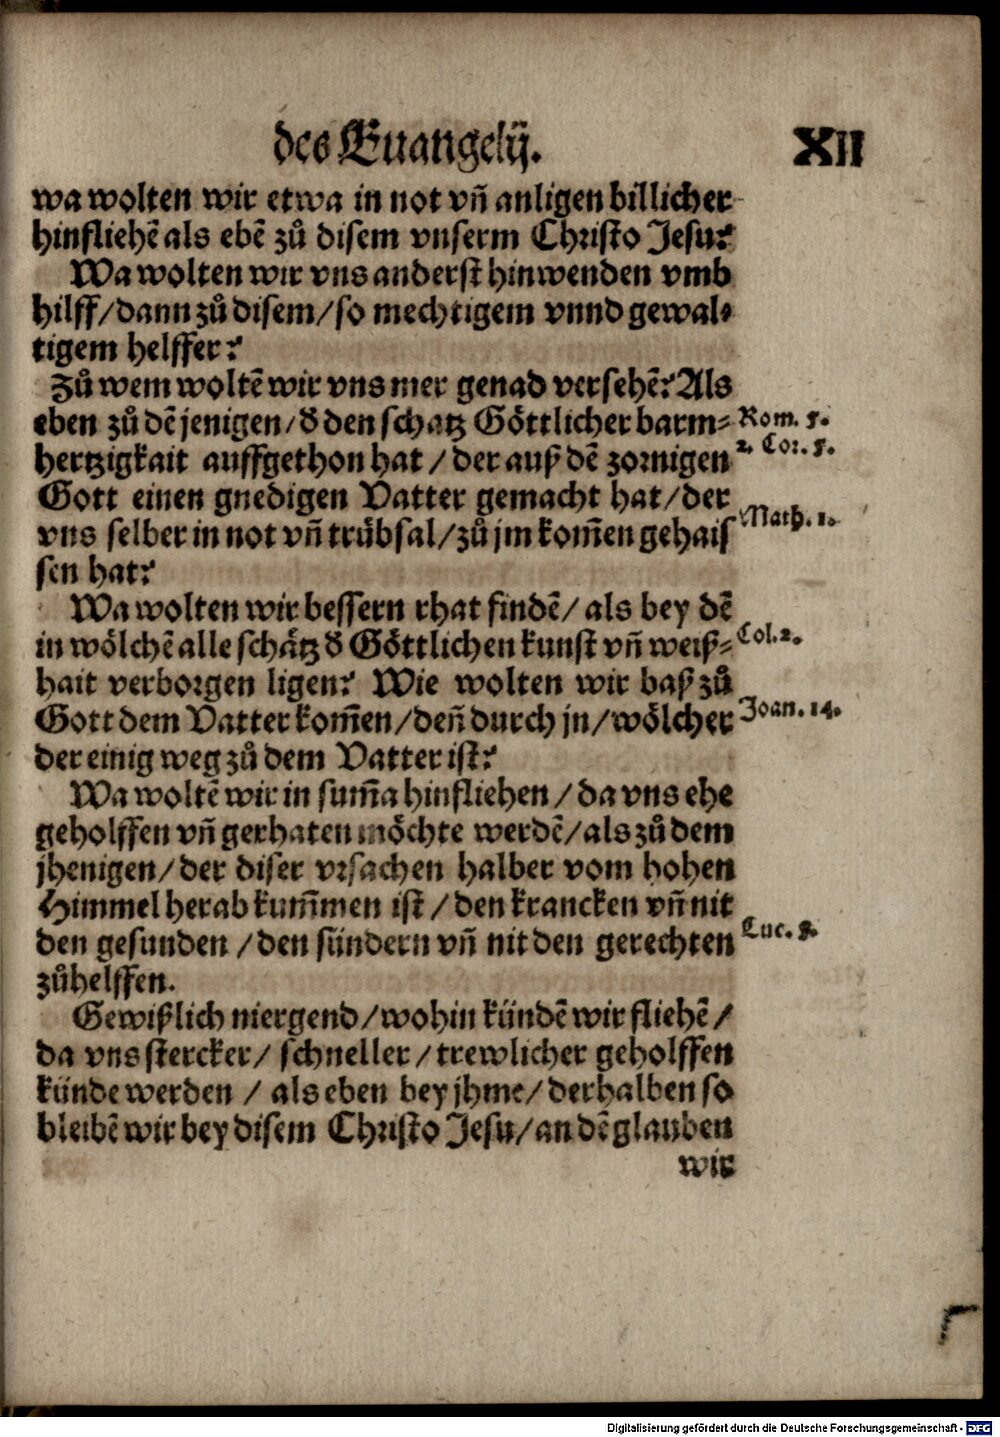 des Euangelÿ. XII
wa wolten wir etwa in not vñ anligen billicher
hinfliehẽ als ebẽ zů disem vnserm Christo Jesu?
Wa wolten wir vns anderst hinwenden vmb
hilff/dann zů disem/so mechtigem vnnd gewal-
tigem helffer?
Zů wem woltẽ wir vns mer genad versehẽ? Als
eben zů dẽ jenigen/d̕ den schatz Göttlicher barm- Rom. 5.
hertzigkait auffgethon hat/der auß dẽ zornigen 2. Cor. 5.
Gott einen gnedigen Vatter gemacht hat/der
vns selber in not vñ trübsal/zů jm kom̃en gehais Math. 1.
sen hat?
Wa wolten wir bessern rhat findẽ/als bey dẽ
in wölchẽ alle schätz d̕ Göttlichen kunst vñ weiß- Col. 2.
hait verborgen ligen? Wie wolten wir baß zů
Gott dem Vatter kom̃en/deñ durch jn/wölcher Joan. 14.
der einig weg zů dem Vatter ist?
Wa woltẽ wir in sum̃a hinfliehen/da vns ehe
geholffen vñ gerhaten möchte werdẽ/als zů dem
jhenigen/der diser vrsachen halber vom hohen
Himmel herab kum̃men ist/den krancken vñ nit
den gesunden/den sündern vñ nit den gerechten Luc. 5.
zůhelffen.
Gewißlich niergend/wohin kündẽ wir fliehẽ/
da vns stercker/schneller/trewlicher geholffen
künde werden/als eben bey jhme/derhalben so
bleibẽ wir bey disem Christo Jesu/an dẽ glauben
wir
Digitalisierung gefördert durch die Deutsche Forschungsgemeinschaft - DFG